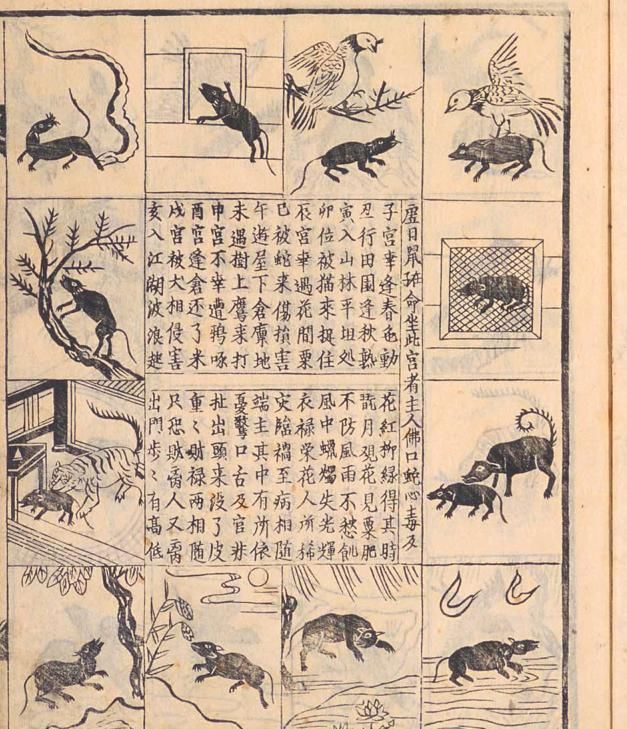 虛日鼠命坐此宮者主人佛口蛇心毒及
子宮幸逢春色動
丑行田園逢秋熟
寅入山林平坦処
卯位被猫來捉住
辰宮幸遇花間粟
巳被蛇來傷損害
午遊屋下倉廩地
未遇樹上鷹來打
申宮不幸遭鴉啄
酉宮逢倉还了米
戌宮被犬相侵害
亥入江湖波浪趂
花紅柳綠得其時
月覌花見粟肥
不防風雨不愁飢
風中蠟燭失光輝
衣禄栗花人所稀
灾臨禍至病相隨
端主其中有所依
憂驚口舌及官非
扯出頭來沒了皮
重〻財禄兩相随
只恐財离人又离
出門步〻有高低